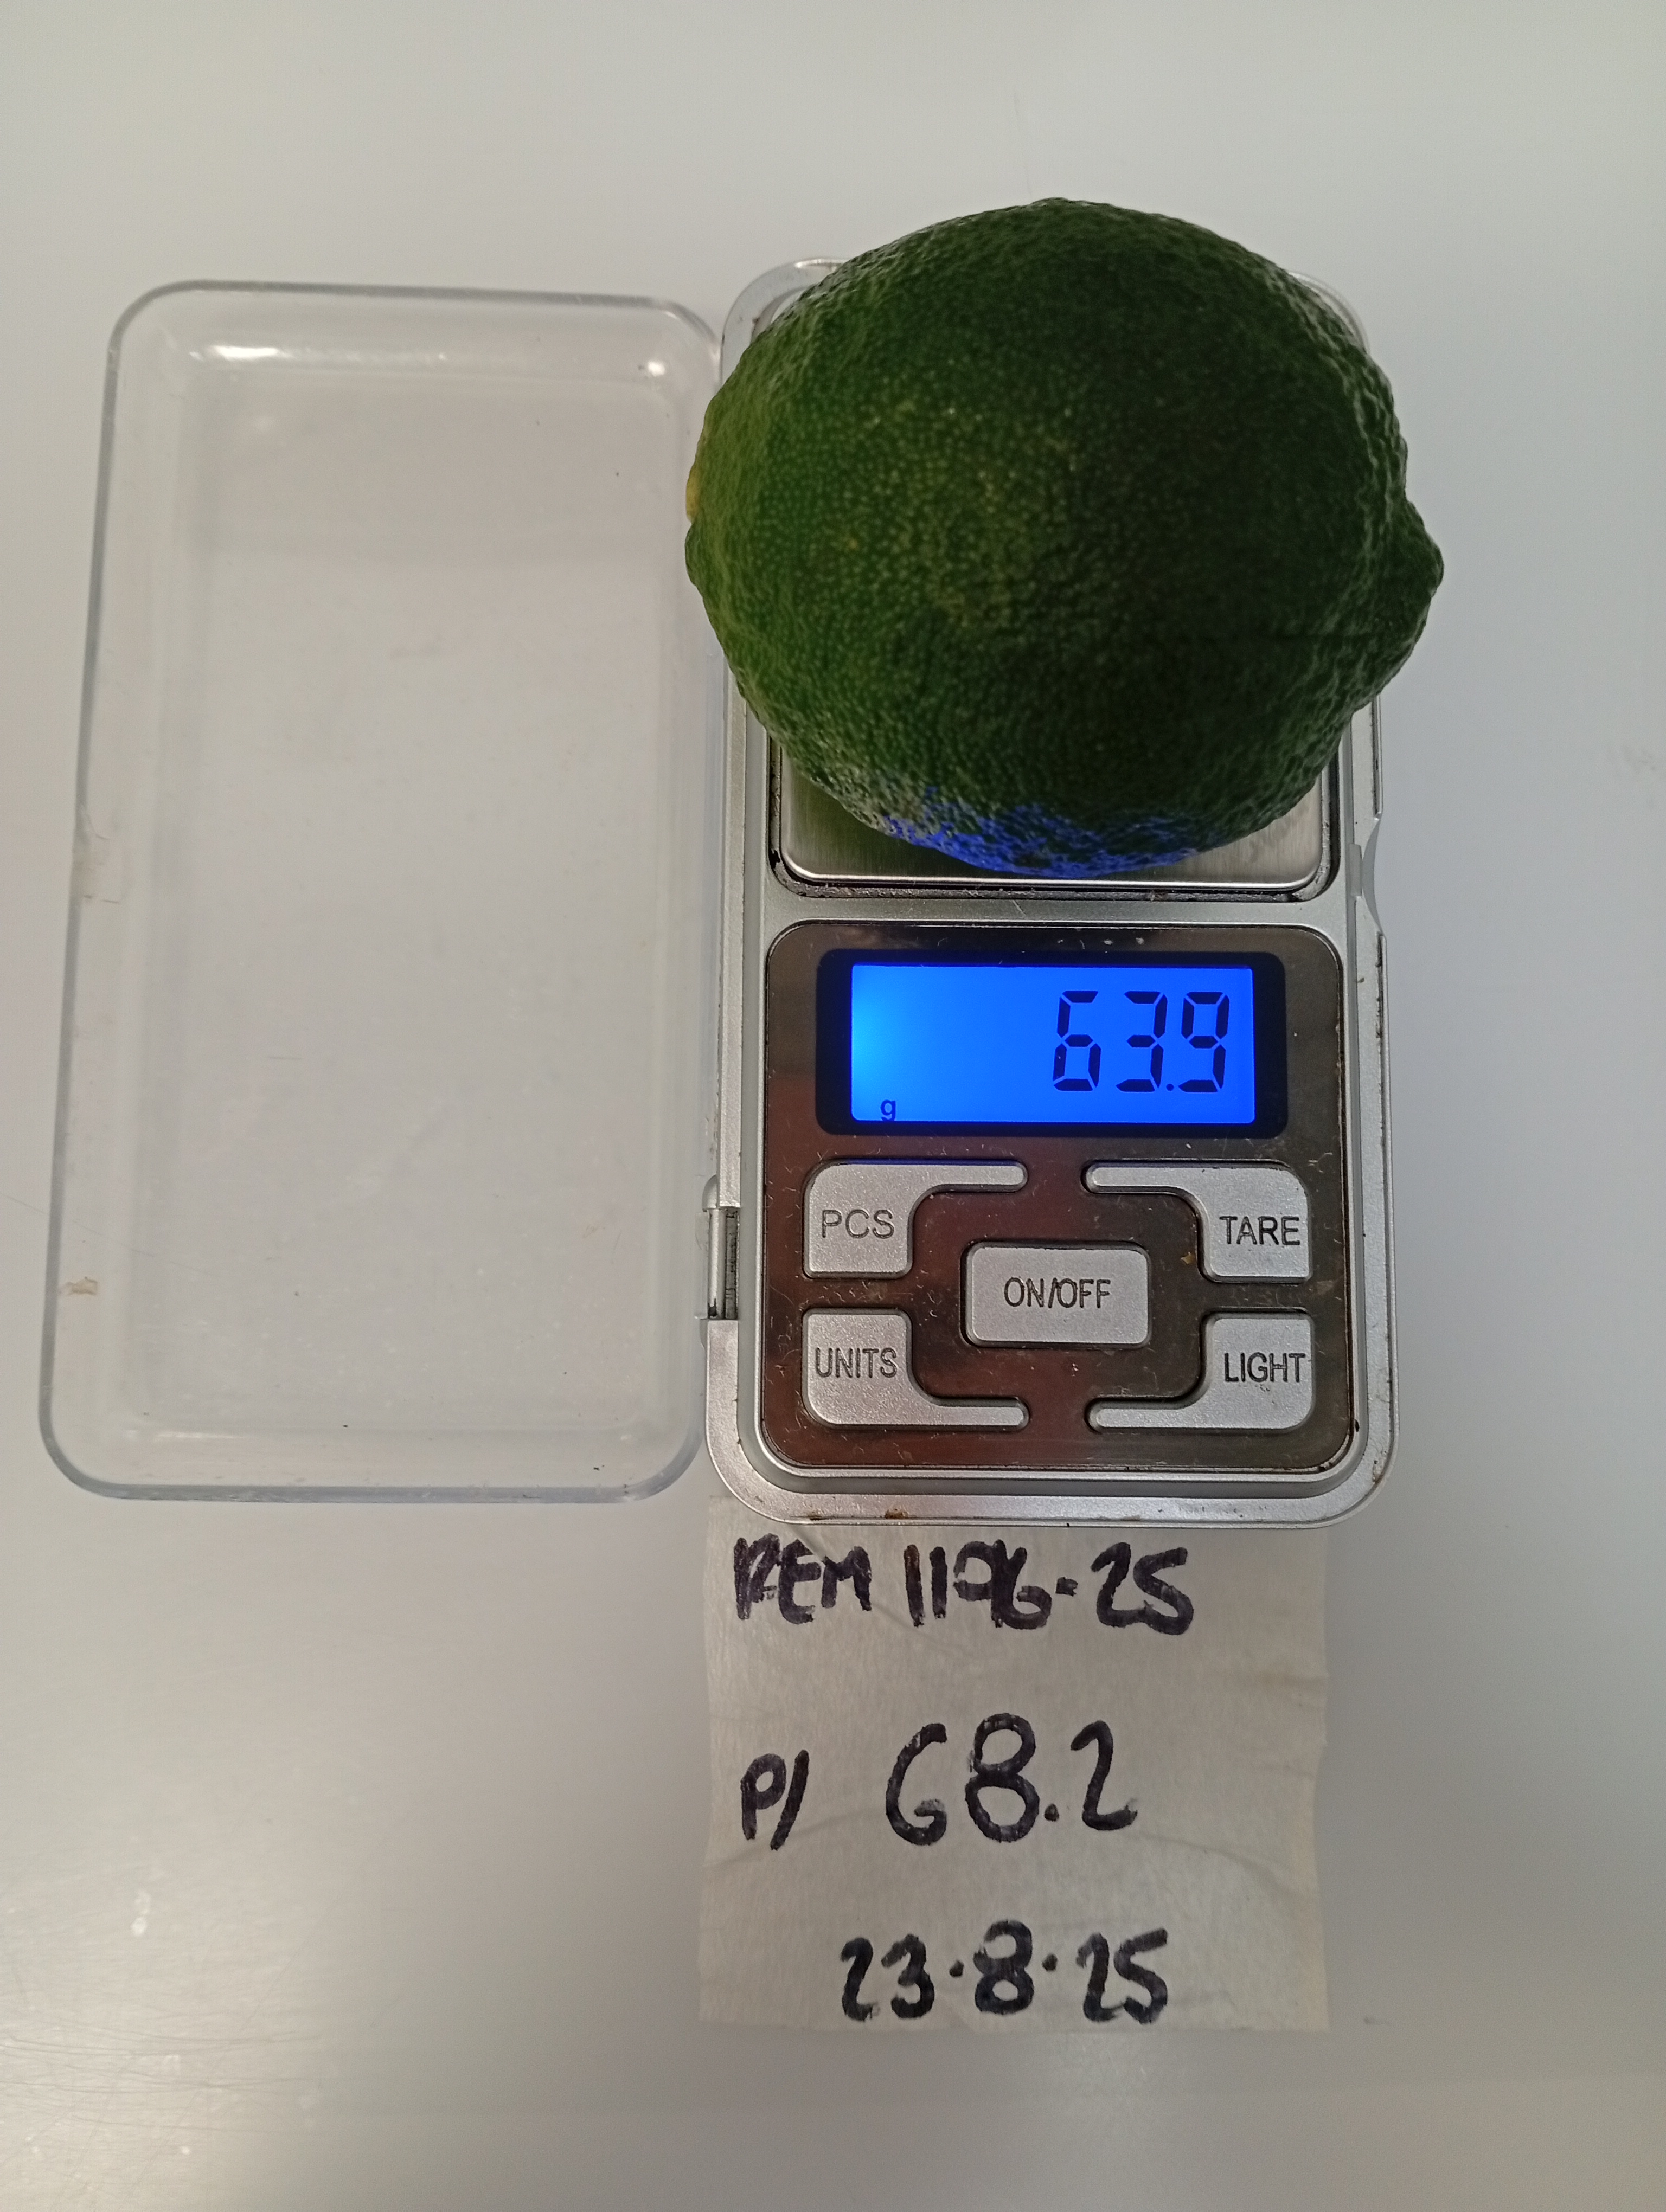 63.9
g
PCS
TARE
ON/OFF
UNITS
LIGHT
REM 1196-25
P/ 68.2
23.8.25